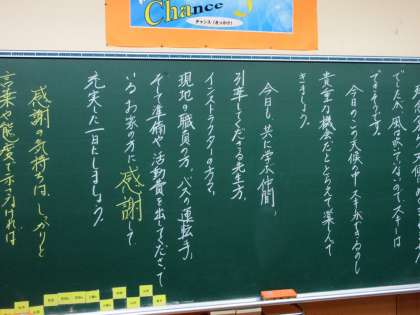 Chance
チャンス(きっかけ)
できそうです。
今日のこの天候の中スキーができるのも
貴重な機会だととらえて楽しんで
きましょう。
今日も共に学ぶ仲間、
引率してくださる先生方、
インストラクターの方々、
現地の職員の方、バスの運転手、
そして準備や活動費を出してくださって
いるお家の方に感謝して
充実した一日にしましょう。
感謝の気持ちは、しっかりと
言葉や態度で示さなければ